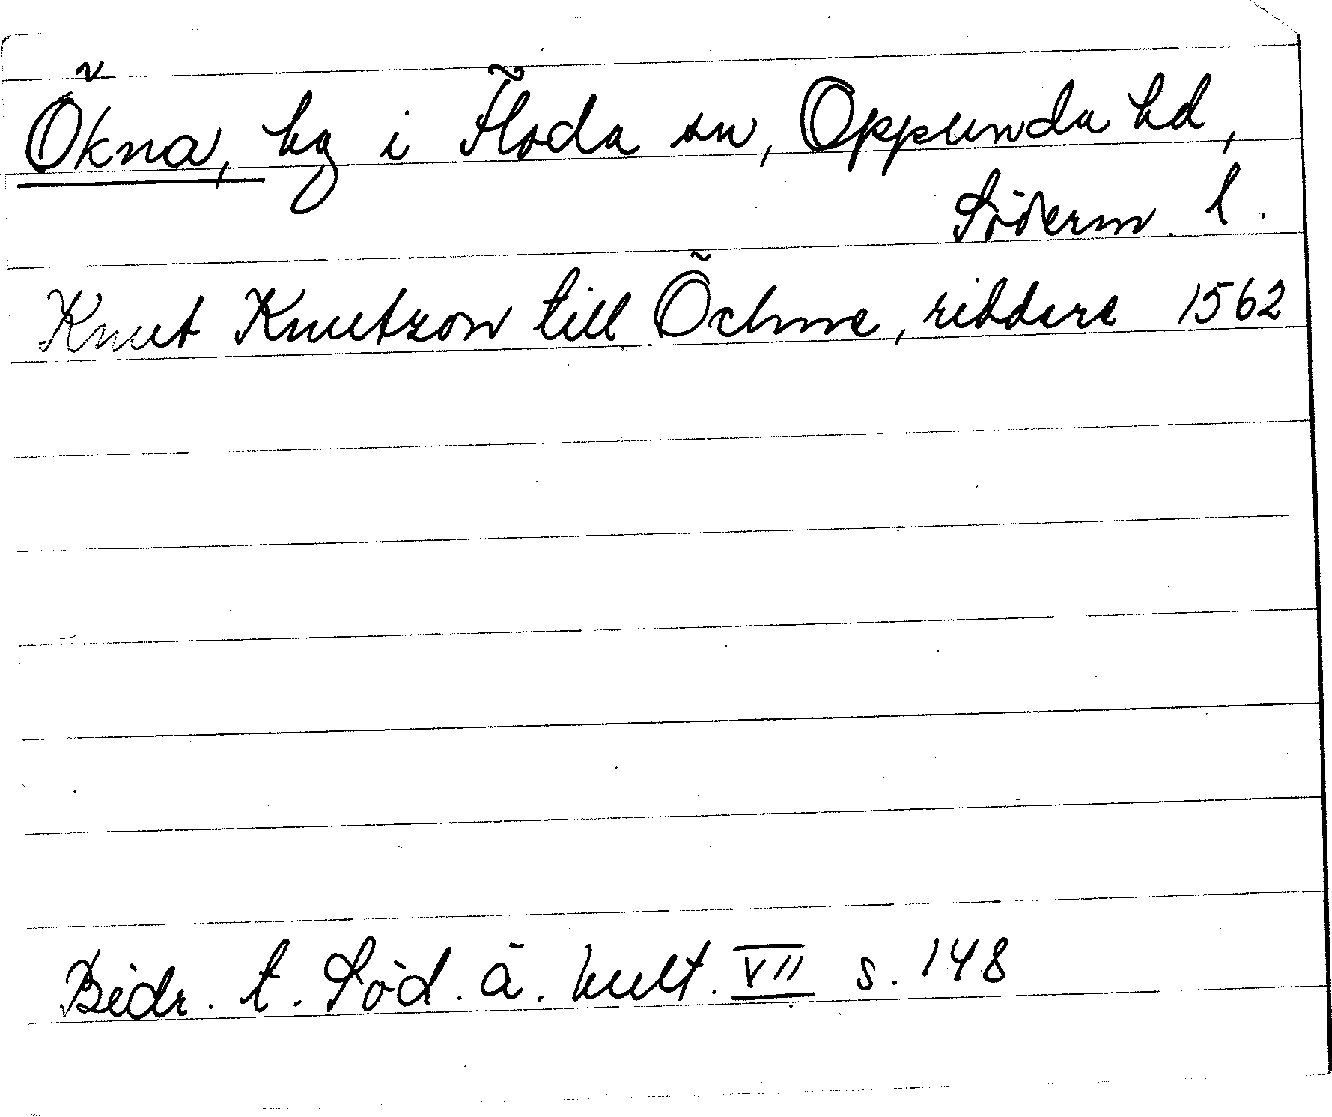 Ökna, hg i Floda sn, Oppunda hd,
Söderm. l.
Knut Knutzon till Öchne, riddare 1562
Bidr. t. Söd. ä. kult. VII s. 148